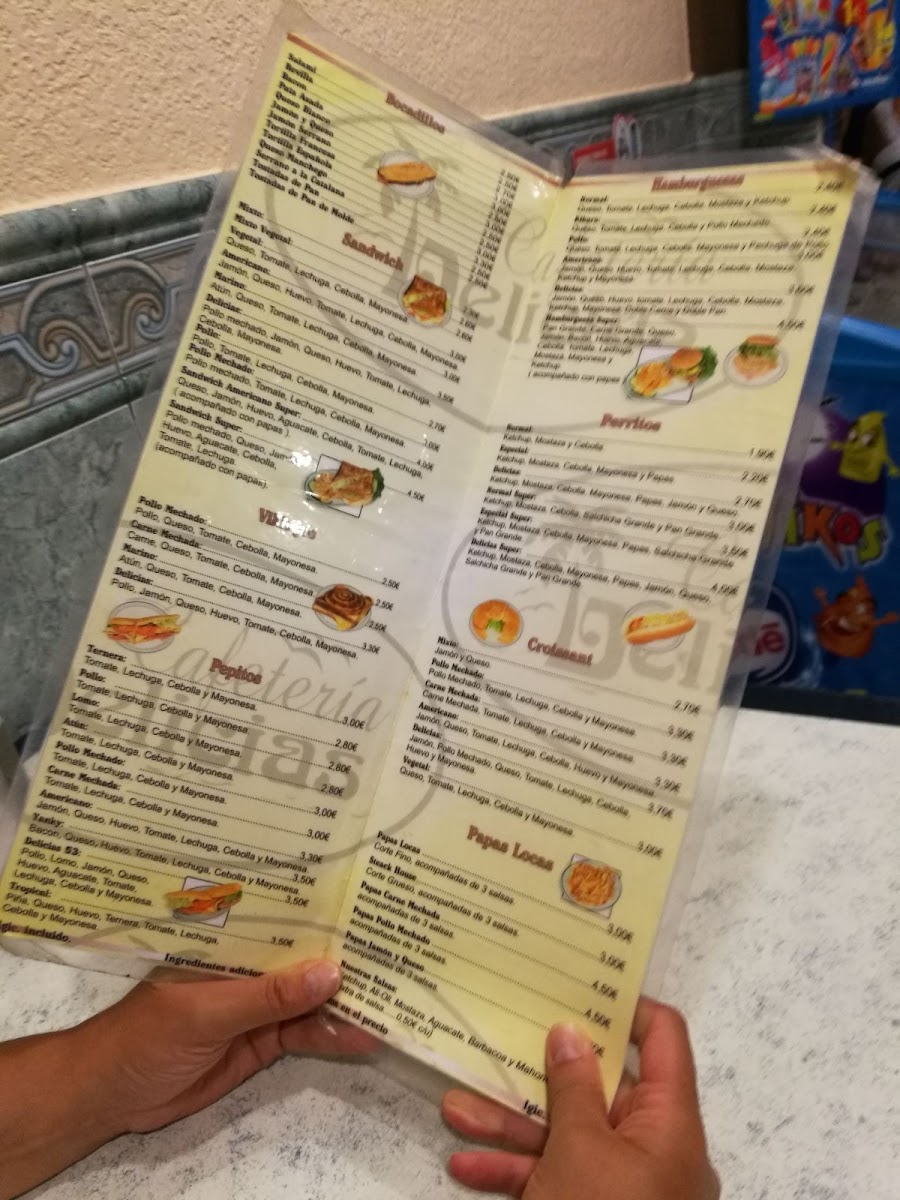 Bocadillos
Salami
Bacon
Pata Asada
Queso Blanco
Jamón y Queso
Jamón Serrano
Tortilla Francesa
Tortilla Española
Queso Manchego
Serrano a la Catalana
Tostadas de Pan
Tostadas de Pan de Molde
Sandwich
Mixto:
Mixto Vegetal:
Vegetal:
Queso, Tomate, Lechuga, Cebolla, Mayonesa
Americano:
Jamón, Queso, Huevo, Tomate, Lechuga, Cebolla, Mayonesa. 3,00€
Marino:
Atún, Queso, Tomate, Lechuga, Cebolla, Mayonesa. 3,00€
Delicias:
Pollo mechado, Jamón, Queso, Huevo, Tomate, Lechuga, 3,50€
Cebolla, Mayonesa.
Pollo:
Pollo, Tomate, Lechuga, Cebolla, Mayonesa. 2,70€
Pollo Mechado:
Pollo mechado, Tomate, Lechuga, Cebolla, Mayonesa.
Sandwich Americano Super:
Queso, Jamón, Huevo, Aguacate, Cebolla, Tomate, Lechuga, 4,00€
( acompañado con papas ).
Sandwich Super:
Pollo mechado, Queso, Jamón 4,50€
Huevo, Aguacate, Cebolla,
Tomate, Lechuga.
(acompañado con papas).
Pollo Mechado:
Pollo, Queso, Tomate, Cebolla, Mayonesa. 2,50€
Carne Mechada:
Carne, Queso, Tomate, Cebolla, Mayonesa. 2,50€
Marino:
Atún, Queso, Tomate, Cebolla, Mayonesa. 2,50€
Delicias:
Pollo, Jamón, Queso, Huevo, Tomate, Cebolla, Mayonesa. 3,30€
Pepitos
Ternera:
Tomate, Lechuga, Cebolla y Mayonesa. 3,00€
Pollo:
Tomate, Lechuga, Cebolla y Mayonesa. 2,80€
Lomo:
Tomate, Lechuga, Cebolla y Mayonesa. 2,80€
Atún:
Tomate, Lechuga, Cebolla y Mayonesa. 2,80€
Pollo Mechado:
Tomate, Lechuga, Cebolla y Mayonesa. 3,00€
Carne Mechada:
Tomate, Lechuga, Cebolla y Mayonesa. 3,00€
Americano:
Jamón, Queso, Huevo, Tomate, Lechuga, Cebolla y Mayonesa. 3,30€
Yanky:
Bacon, Queso, Huevo, Tomate, Lechuga, Cebolla y Mayonesa. 3,50€
Delicias
Pollo, Lomo, Jamón, Queso, 3,50€
Huevo, Aguacate, Tomate,
Lechuga, Cebolla y Mayonesa.
Tropical:
Piña, Queso, Huevo, Ternera, Tomate, Lechuga, 3,50€
Cebolla y Mayonesa.
Igic. incluido.
Ingredientes
Hamburguesas
Normal:
Queso, Tomate, Lechuga, Cebolla, Mostaza y Ketchup
Queso, Tomate, Lechuga, Cebolla y Pollo Mechado
Pollo:
Queso, Tomate, Lechuga, Cebolla, Mayonesa y Pechuga de Pollo
Americana:
Jamón, Queso, Huevo, Tomate, Lechuga, Cebolla, Mostaza,
Ketchup y Mayonesa.
Delicias:
Jamón, Queso, Huevo, tomate, Lechuga, Cebolla, Mostaza,
ketchup, Mayonesa, Doble Carne y Doble Pan
Hamburguesa Super: 4,50€
Pan Grande, Carne Grande, Queso,
Jamón, Bacon, Huevo, Aguacate,
Cebolla, Tomate, Lechuga,
Mostaza, Mayonesa y
Ketchup
( acompañado con papas
Perritos
Normal:
Ketchup, Mostaza y Cebolla 1,90€
Especial:
Ketchup, Mostaza, Cebolla, Mayonesa y Papas 2,20€
Delicias:
Ketchup, Mostaza, Cebolla, Mayonesa, Papas, Jamón y Queso 2,70€
Normal Super:
Ketchup, Mostaza, Cebolla, Salchicha Grande y Pan Grande 3,00€
Especial Super:
Ketchup, Mostaza, Cebolla, Mayonesa, Papas, Salchicha Grande 3,50€
y Pan Grande
Delicias Super:
Ketchup, Mostaza, Cebolla, Mayonesa, Papas, Jamón, Queso, 4,00€
Salchicha Grande y Pan Grande
Croissant
Mixto:
Jamón y Queso 2,70€
Pollo Mechado:
Pollo Mechado, Tomate, Lechuga, Cebolla y Mayonesa 3,30€
Carne Mechada:
Carne Mechada, Tomate, Lechuga, Cebolla y Mayonesa. 3,30€
Americano:
Jamón, Queso, Tomate, Lechuga, Cebolla, Huevo y Mayonesa 3,30€
Delicias:
Jamón, Pollo Mechado, Queso, Tomate, Lechuga, Cebolla, 3,75€
Huevo y Mayonesa
Vegetal:
Queso, Tomate, Lechuga, Cebolla y Mayonesa 3,00€
Papas Locas
Papas Locas
Corte Fino, acompañadas de 3 salsas. 3,00€
Steack House
Corte Grueso, acompañadas de 3 salsas. 3,00€
Papas Carne Mechada
acompañadas de 3 salsas. 4,50€
Papas Pollo Mechado
acompañadas de 3 salsas. 4,50€
Papas Jamón y Queso
acompañadas de 3 salsas.
Nuestras Salsas:
Ketchup, Ali-Oli, Mostaza, Aguacate, Barbacoa y
0,50€ c/u)
en el precio
Igic.
Cafetería